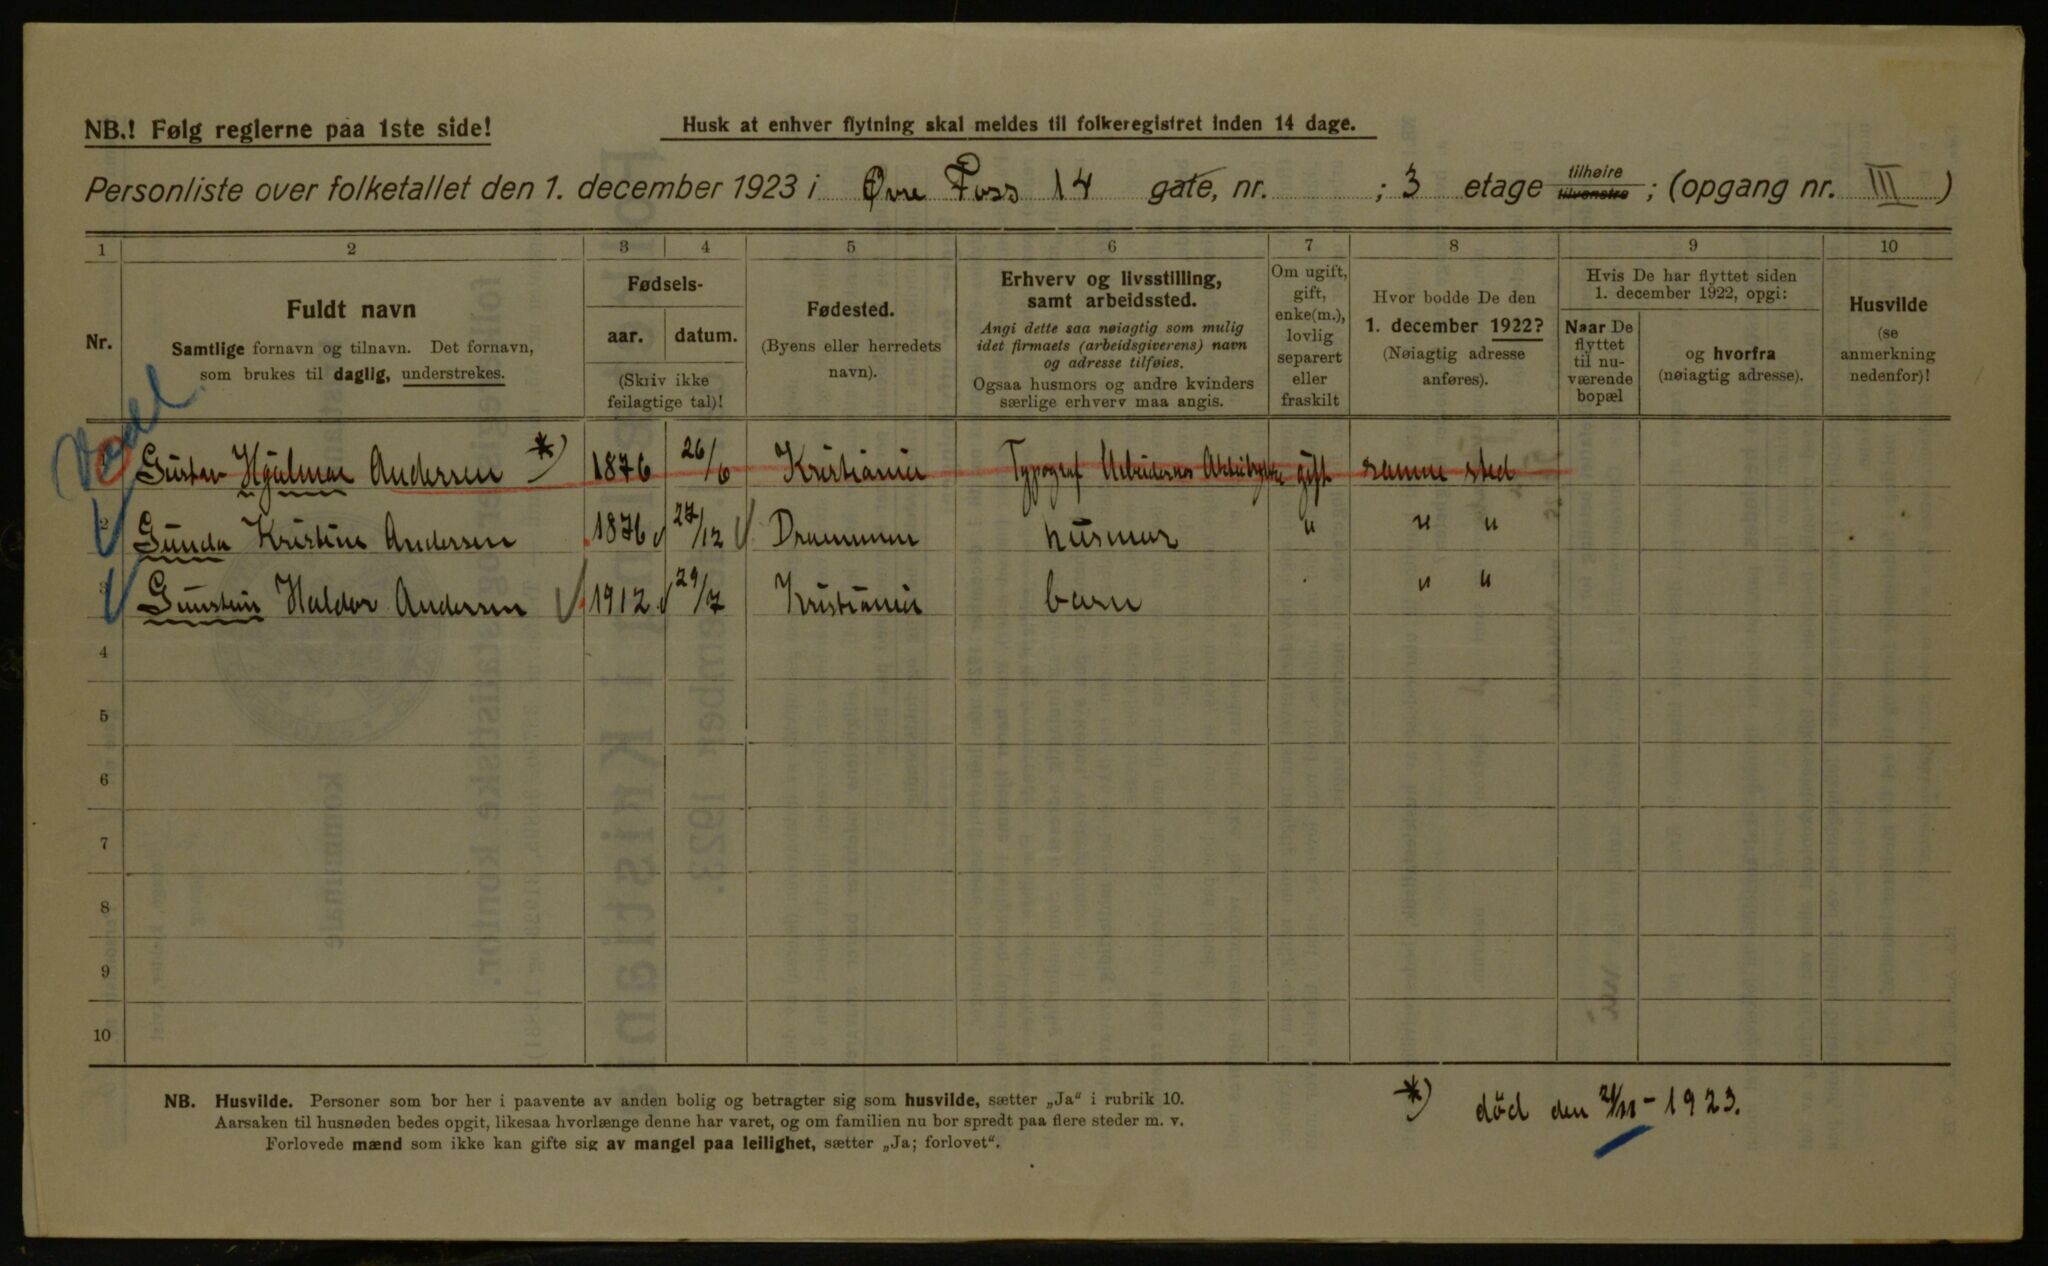 NB.! Følg reglerne paa 1ste side!
Husk at enhver flytning skal meldes til folkeregistret inden 14 dage.
Personliste over folketallet den 1. december 1923 i Øvre Foss 14 gate, nr. ; 3 etage tilhøire tilvenstre ; (opgang nr. III )
1 2 3 4 5 6 7 8 9 10
Nr.
Fuldt navn
Samtlige fornavn og tilnavn. Det fornavn,
som brukes til daglig, understrekes.
Fødsels-
aar. datum.
(Skriv ikke
feilagtige tal)!
Fødested.
(Byens eller herredets
navn).
Erhverv og livsstilling,
samt arbeidssted.
Angi dette saa nøiagtig som mulig
idet firmaets (arbeidsgiverens) navn
og adresse tilføies.
Ogsaa husmors og andre kvinders
særlige erhverv maa angis.
Om ugift,
gift,
enke(m.),
lovlig
separert
eller
fraskilt
Hvor bodde De den
1. december 1922?
(Nøiagtig adresse
anføres).
Hvis De har flyttet siden
1. december 1922, opgi:
Naar De
flyttet
til nu-
værende
bopæl
og hvorfra
(nøiagtig adresse).
Husvilde
(se
anmerkning
nedenfor)!
Gustav Hjalmar Andersen *) 1876 26/6 Kristiania Typograf Arbeidernes gift samme sted
2 Gunda Kristine Andersen 1876 27/12 Drammen husmor " " "
3 Gunstein Haldor Andersen 1912 29/7 Kristiania barn " "
4
5
6
7
8
9
10
NB. Husvilde. Personer som bor her i paavente av anden bolig og betragter sig som husvilde, sætter „Ja“ i rubrik 10.
Aarsaken til husnøden bedes opgit, likesaa hvorlænge denne har varet, og om familien nu bor spredt paa flere steder m. v.
Forlovede mænd som ikke kan gifte sig av mangel paa leilighet, sætter „Ja; forlovet“.
*) død den - 1923.